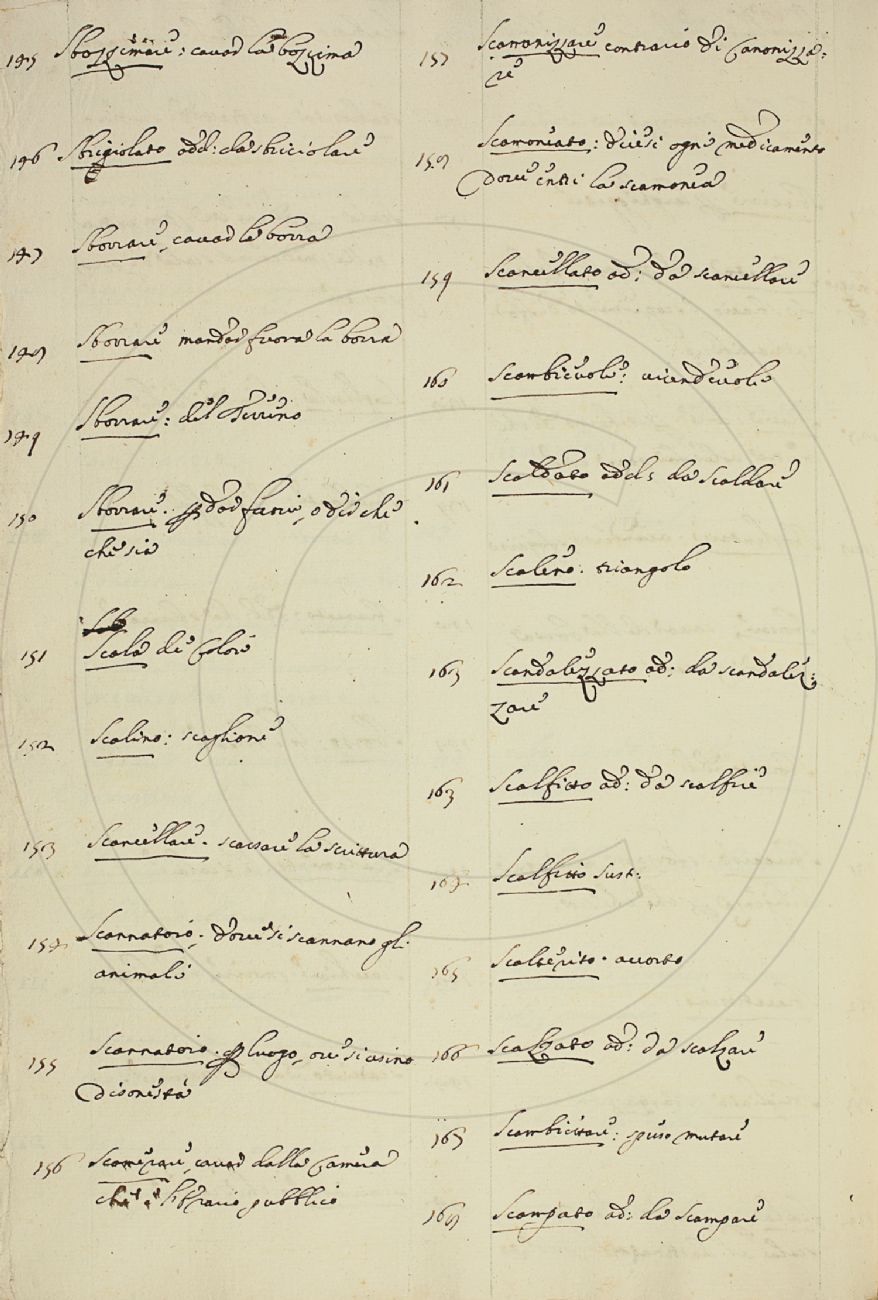 145 Sbozzimare: cavar la bozzima
146 Sbrigiolato add: da sbriciolare
147 Sborrare, cavar la borra
148 Sborrare mandar fuora la borra
149 Sborrare: del Terreno
150 Sborrare. p dar fuori, o dir che
che sia
151 Scala de Colori
152 Scalino: scaglione
153 Scancellare. scassare la scrittura
154 Scannatoio. dove si scannano gl.
animali
155 Scannatoio. p luogo, ove si usino
disonestà
156 Scamerare, cavar dalla Camera
che è l'erario pubblico
157 Scanonizzare contrario di Canonizza:
re
158 Scamoneato: dicesi ogni medicamento
dove entri la scamonea
159 Scancellato ad: da scancellare
160 Scambievole: vicendevole
161 Scaldato add: da Scaldare
162 Scaleno: triangolo
163 Scandalezzato ad: da scandalez:
zare
163 Scalfitto ad: da scalfire
164 Scalfitto Sust:
165 Scalterito. accorto
166 Scalzato ad: da scalzare
165 Scambiettare: spesso mutare
168 Scampato ad: da Scampare